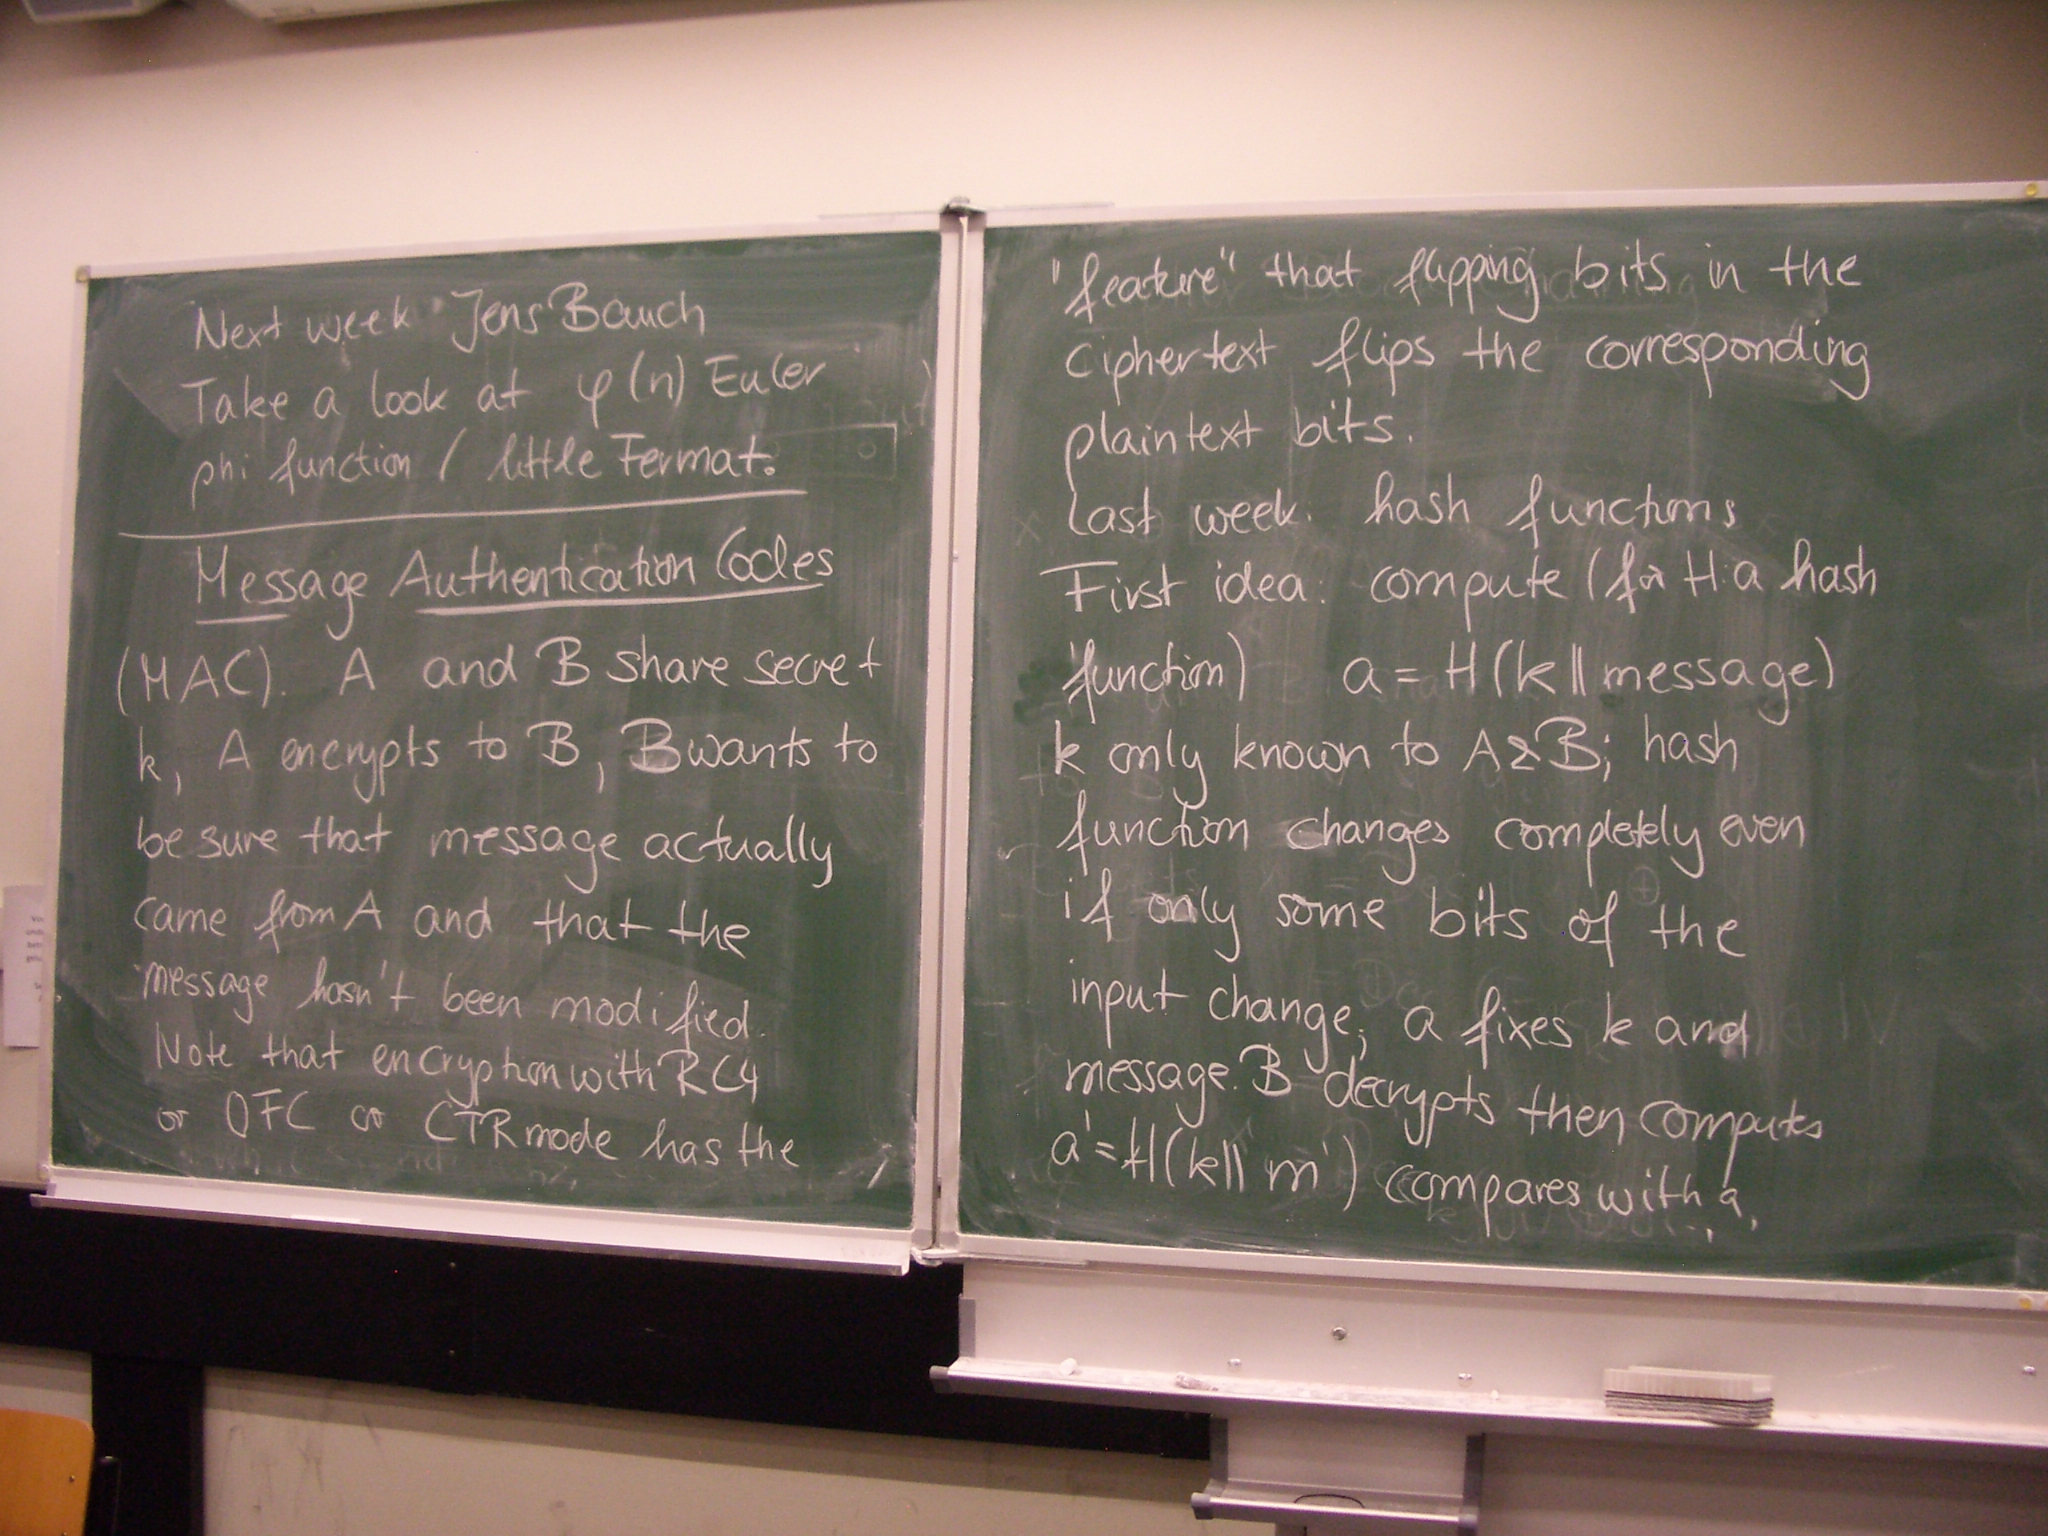 Next week Jens Bauch
Take a look at φ(n) Euler
phi function / little Fermat.
Message Authentication Codes
(MAC). A and B share secret
k, A encrypts to B, B wants to
be sure that message actually
came from A and that the
message hasn't been modified.
Note that encryption with RC4
or OFC or CTR mode has the
"feature" that flipping bits in the
ciphertext flips the corresponding
plaintext bits.
Last week: hash functions
First idea: compute (for H a hash
function) a = H(k || message)
k only known to A & B; hash
function changes completely even
if only some bits of the
input change; a fixes k and
message. B decrypts then computes
a' = H(k || m') compares with a.